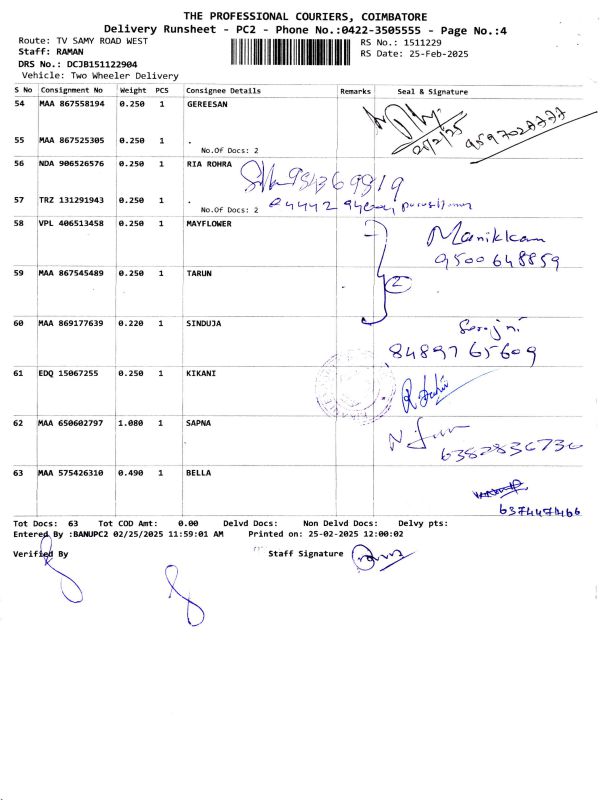 THE PROFESSIONAL COURIERS, COIMBATORE
Delivery Runsheet - PC2 - Phone No.:0422-3505555 - Page No.:4
Route: TV SAMY ROAD WEST
RS No.: 1511229
Staff: RAMAN
RS Date: 25-Feb-2025
DRS No.: DCJB151122904
Vehicle: Two Wheeler Delivery
S No Consignment No Weight PCS Consignee Details Remarks Seal & Signature
54 MAA 867558194 0.250 1 GEREESAN
25/2/25 9597028777
55 MAA 867525305 0.250 1 .
No.Of Docs: 2
56 NDA 906526576 0.250 1 RIA ROHRA
57 TRZ 131291943 0.250 1 .
No.Of Docs: 2
58 VPL 406513458 0.250 1 MAYFLOWER
Manikkam
9500648859
59 MAA 867545489 0.250 1 TARUN
2
60 MAA 869177639 0.220 1 SINDUJA
8489765609
61 EDQ 15067255 0.250 1 KIKANI
62 MAA 650602797 1.080 1 SAPNA
6382836730
63 MAA 575426310 0.490 1 BELLA
637447466
Tot Docs: 63 Tot COD Amt: 0.00 Delvd Docs: Non Delvd Docs: Delvy pts:
Entered By :BANUPC2 02/25/2025 11:59:01 AM Printed on: 25-02-2025 12:00:02
Verified By Staff Signature